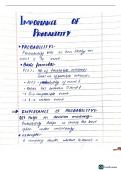 IMPORTANCE OF
PROBABILITY
• PROBABILITY:
Probability tells us how likely an
event is to the event.
• Basic formula:
P(E) = No of favourable outcomes
Total no of possible outcomes
• P(E) = probability of event E
• Values lie between 0 and 1
• 0 → impossible event
• 1 → certain event
• IMPORTANCE OF PROBABILITY:
① It helps in decision making:
Probability helps in choosing the best
option under uncertainty
• example:
A company decides whether to launch a